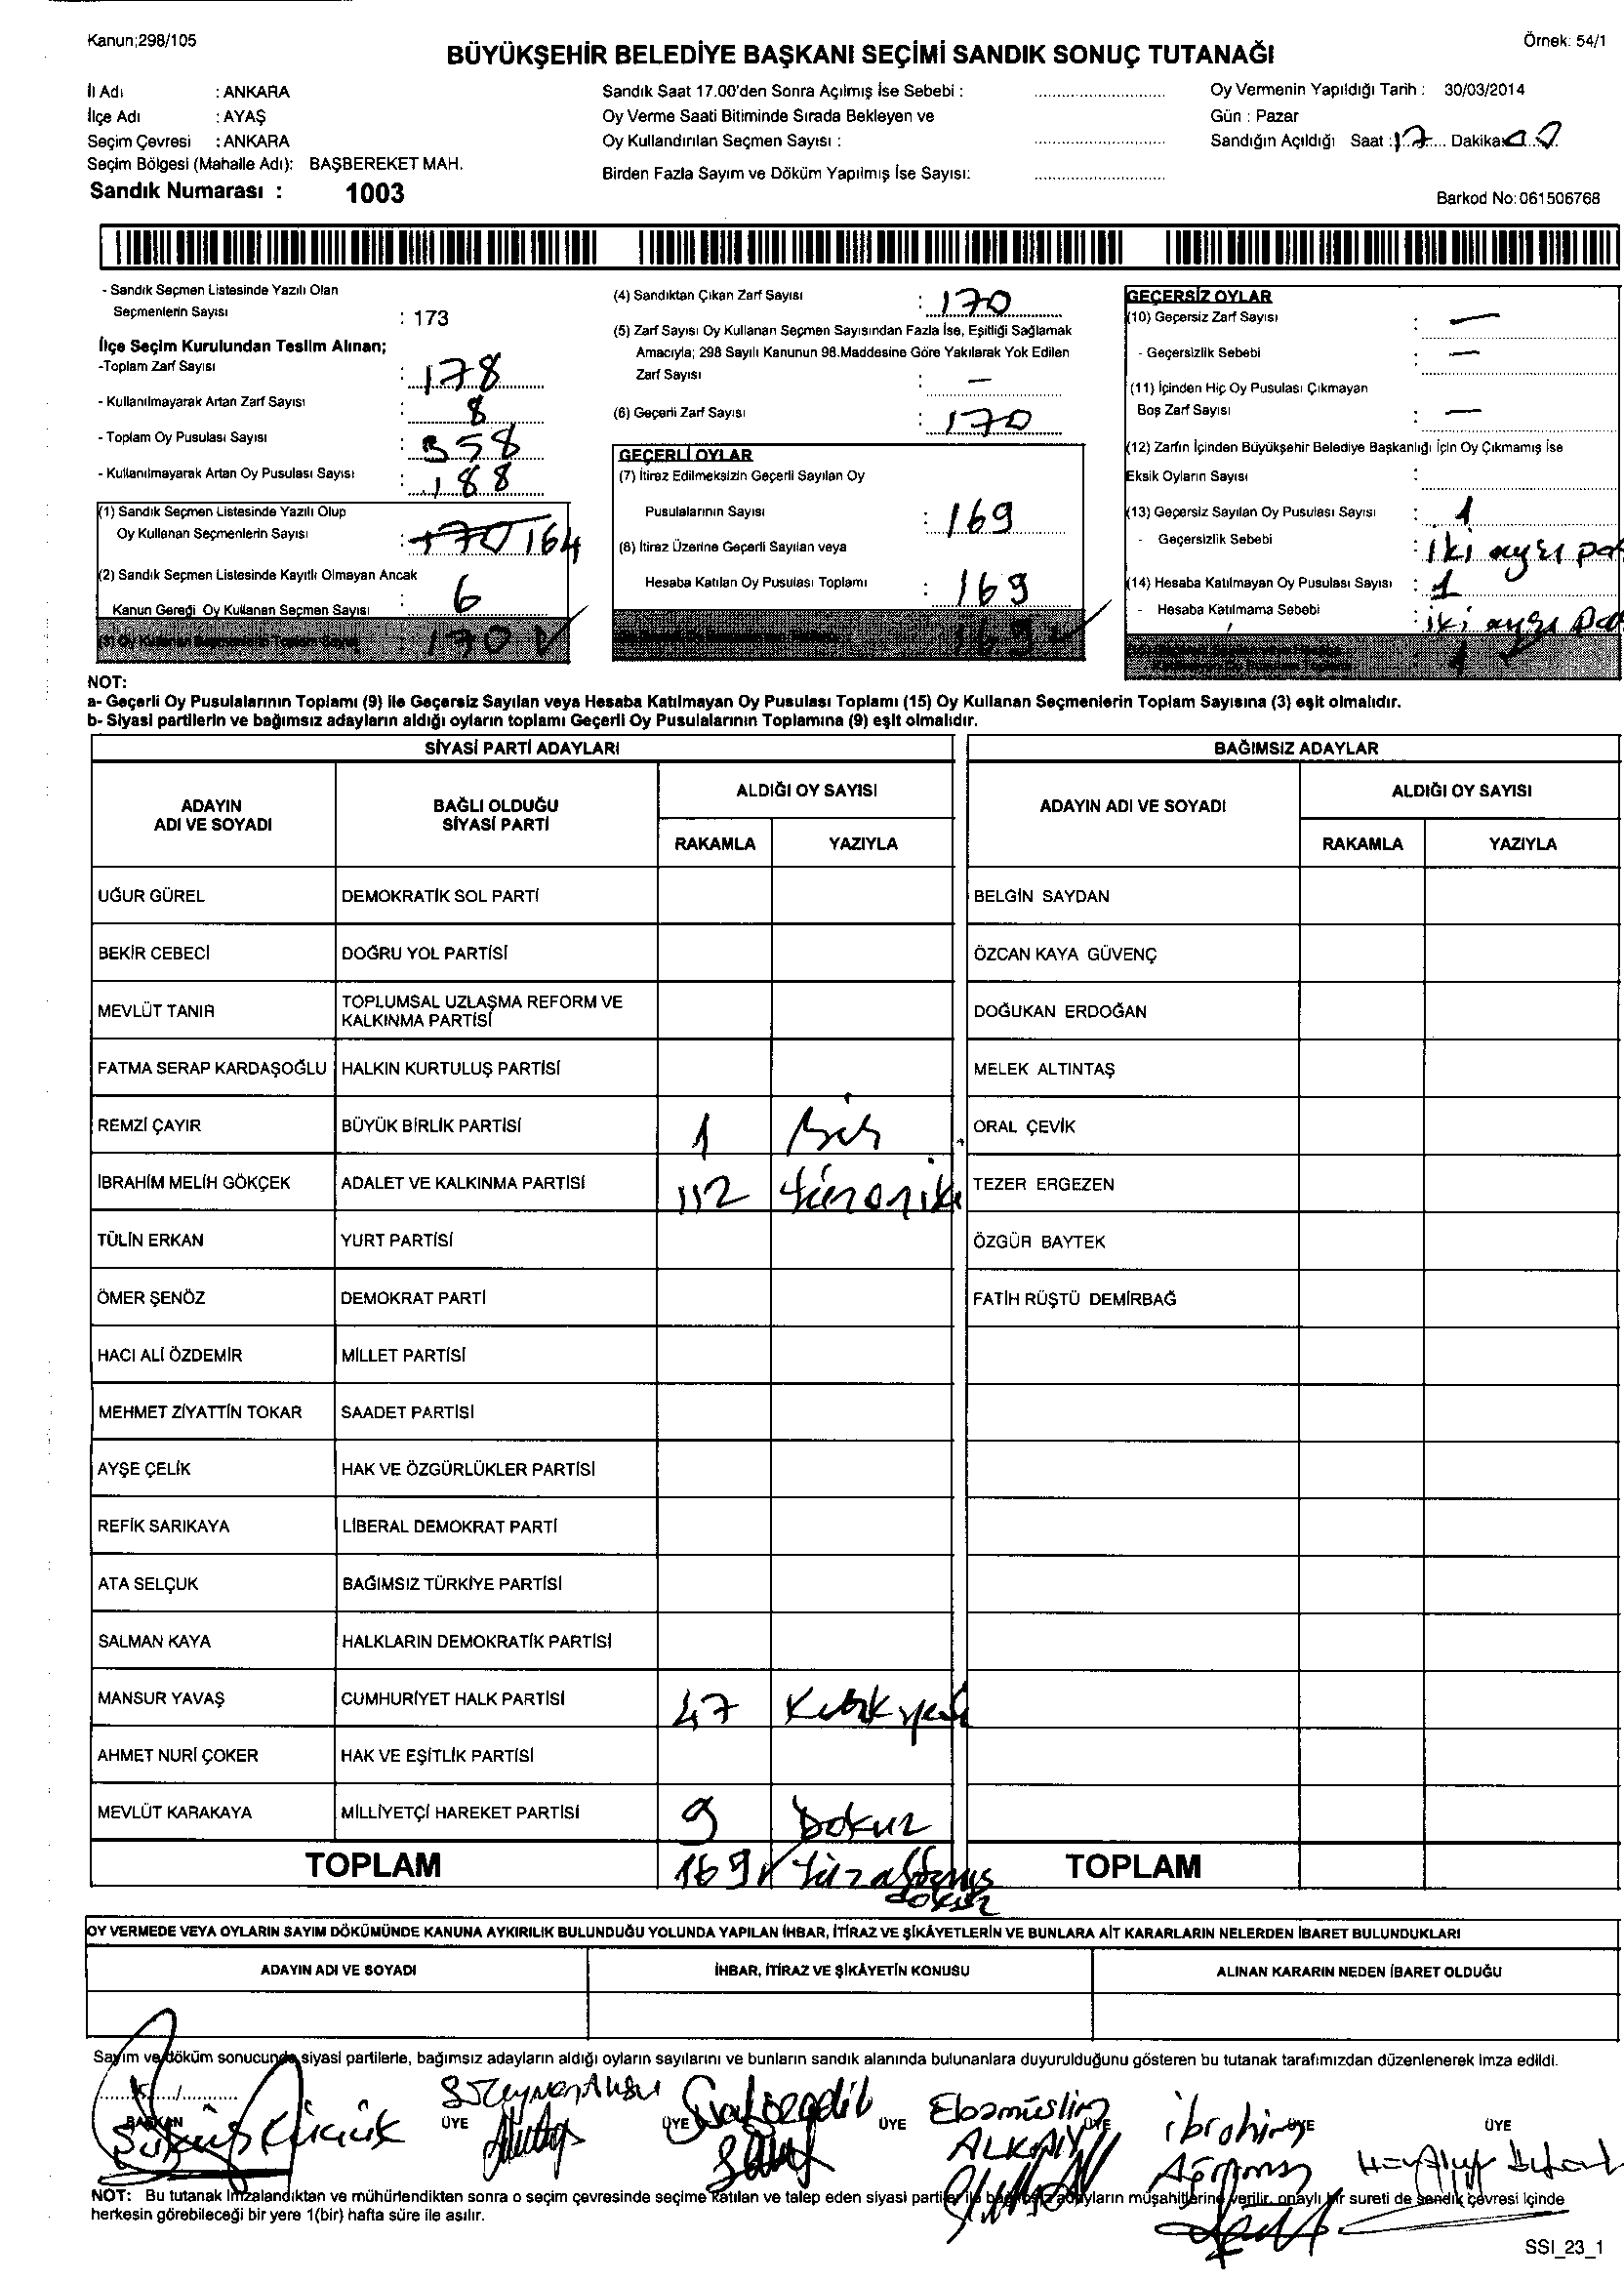 Kanun;298/105
Örnek: 54/1
BÜYÜKŞEHİR BELEDİYE BAŞKANI SEÇİMİ SANDIK SONUÇ TUTANAĞI
İl Adı : ANKARA
İlçe Adı : AYAŞ
Seçim Çevresi : ANKARA
Seçim Bölgesi (Mahalle Adı): BAŞBEREKET MAH.
Sandık Numarası : 1003
Sandık Saat 17.00'den Sonra Açılmış İse Sebebi :
Oy Verme Saati Bitiminde Sırada Bekleyen ve
Oy Kullandırılan Seçmen Sayısı :
Birden Fazla Sayım ve Döküm Yapılmış İse Sayısı:
Oy Vermenin Yapıldığı Tarih : 30/03/2014
Gün : Pazar
Sandığın Açıldığı Saat : 17 Dakika
Barkod No:061506768
- Sandık Seçmen Listesinde Yazılı Olan
Seçmenlerin Sayısı : 173
İlçe Seçim Kurulundan Teslim Alınan;
-Toplam Zarf Sayısı : 178
- Kullanılmayarak Artan Zarf Sayısı : 8
- Toplam Oy Pusulası Sayısı : 358
- Kullanılmayarak Artan Oy Pusulası Sayısı : 188
(1) Sandık Seçmen Listesinde Yazılı Olup
Oy Kullanan Seçmenlerin Sayısı : 170 164
(2) Sandık Seçmen Listesinde Kayıtlı Olmayan Ancak
Kanun Gereği Oy Kullanan Seçmen Sayısı : 6
(3) Oy Kullanan Seçmenlerin Toplam Sayısı : 170
(4) Sandıktan Çıkan Zarf Sayısı : 170
(5) Zarf Sayısı Oy Kullanan Seçmen Sayısından Fazla İse, Eşitliği Sağlamak
Amacıyla; 298 Sayılı Kanunun 98.Maddesine Göre Yakılarak Yok Edilen
Zarf Sayısı : -
(6) Geçerli Zarf Sayısı : 170
GEÇERLİ OYLAR
(7) İtiraz Edilmeksizin Geçerli Sayılan Oy
Pusulalarının Sayısı : 169
(8) İtiraz Üzerine Geçerli Sayılan veya
Hesaba Katılan Oy Pusulası Toplamı : 169
169
GEÇERSİZ OYLAR
(10) Geçersiz Zarf Sayısı : —
- Geçersizlik Sebebi : —
(11) İçinden Hiç Oy Pusulası Çıkmayan
Boş Zarf Sayısı : —
(12) Zarfın İçinden Büyükşehir Belediye Başkanlığı İçin Oy Çıkmamış İse
Eksik Oyların Sayısı :
(13) Geçersiz Sayılan Oy Pusulası Sayısı : 1
- Geçersizlik Sebebi : iki ayrı
(14) Hesaba Katılmayan Oy Pusulası Sayısı : 1
- Hesaba Katılmama Sebebi : iki ayrı
1
NOT:
a- Geçerli Oy Pusulalarının Toplamı (9) ile Geçersiz Sayılan veya Hesaba Katılmayan Oy Pusulası Toplamı (15) Oy Kullanan Seçmenlerin Toplam Sayısına (3) eşit olmalıdır.
b- Siyasi partilerin ve bağımsız adayların aldığı oyların toplamı Geçerli Oy Pusulalarının Toplamına (9) eşit olmalıdır.
SİYASİ PARTİ ADAYLARI
BAĞIMSIZ ADAYLAR
ADAYIN ADI VE SOYADI
BAĞLI OLDUĞU SİYASİ PARTİ
ALDIĞI OY SAYISI
RAKAMLA YAZIYLA
ADAYIN ADI VE SOYADI
ALDIĞI OY SAYISI
RAKAMLA YAZIYLA
UĞUR GÜREL DEMOKRATİK SOL PARTİ BELGİN SAYDAN
BEKİR CEBECİ DOĞRU YOL PARTİSİ ÖZCAN KAYA GÜVENÇ
MEVLÜT TANIR TOPLUMSAL UZLAŞMA REFORM VE KALKINMA PARTİSİ DOĞUKAN ERDOĞAN
FATMA SERAP KARDAŞOĞLU HALKIN KURTULUŞ PARTİSİ MELEK ALTINTAŞ
REMZİ ÇAYIR BÜYÜK BİRLİK PARTİSİ 1 Bir ORAL ÇEVİK
İBRAHİM MELİH GÖKÇEK ADALET VE KALKINMA PARTİSİ 112 yüzoniki TEZER ERGEZEN
TÜLİN ERKAN YURT PARTİSİ ÖZGÜR BAYTEK
ÖMER ŞENÖZ DEMOKRAT PARTİ FATİH RÜŞTÜ DEMİRBAĞ
HACI ALİ ÖZDEMİR MİLLET PARTİSİ
MEHMET ZİYATTİN TOKAR SAADET PARTİSİ
AYŞE ÇELİK HAK VE ÖZGÜRLÜKLER PARTİSİ
REFİK SARIKAYA LİBERAL DEMOKRAT PARTİ
ATA SELÇUK BAĞIMSIZ TÜRKİYE PARTİSİ
SALMAN KAYA HALKLARIN DEMOKRATİK PARTİSİ
MANSUR YAVAŞ CUMHURİYET HALK PARTİSİ 47 Kırkyedi
AHMET NURİ ÇOKER HAK VE EŞİTLİK PARTİSİ
MEVLÜT KARAKAYA MİLLİYETÇİ HAREKET PARTİSİ 9 Dokuz
TOPLAM 169 yüzaltmış dokuz TOPLAM
OY VERMEDE VEYA OYLARIN SAYIM DÖKÜMÜNDE KANUNA AYKIRILIK BULUNDUĞU YOLUNDA YAPILAN İHBAR, İTİRAZ VE ŞİKÂYETLERİN VE BUNLARA AİT KARARLARIN NELERDEN İBARET BULUNDUKLARI
ADAYIN ADI VE SOYADI İHBAR, İTİRAZ VE ŞİKÂYETİN KONUSU ALINAN KARARIN NEDEN İBARET OLDUĞU
Sayım ve döküm sonucunda siyasi partilerle, bağımsız adayların aldığı oyların sayılarını ve bunların sandık alanında bulunanlara duyurulduğunu gösteren bu tutanak tarafımızdan düzenlenerek imza edildi.
BAŞKAN ÜYE ÜYE ÜYE ÜYE ÜYE ÜYE
Küçük Ebamüslim ALKAN İbrahim
NOT: Bu tutanak imzalandıktan ve mühürlendikten sonra o seçim çevresinde seçime katılan ve talep eden siyasi partiler ile bağımsız adayların müşahitlerine verilir. onaylı bir sureti de sandık çevresi içinde
herkesin görebileceği bir yere 1(bir) hafta süre ile asılır.
SSI_23_1